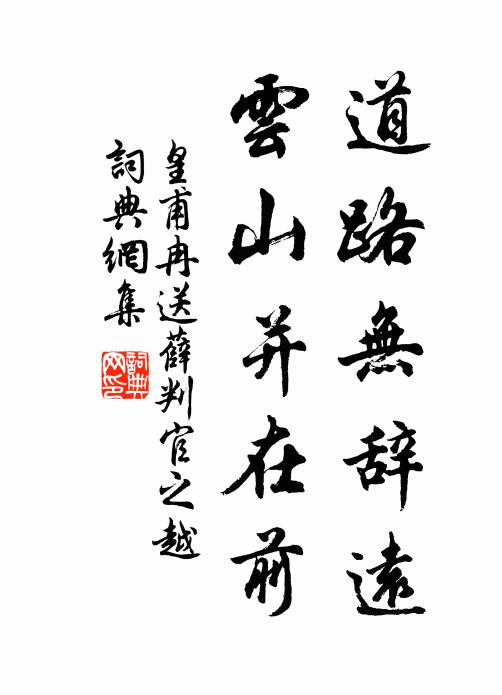 道路無辞遠
雲山并在前
皇甫冉送薛判官之越
詞典網集
詞典
网印